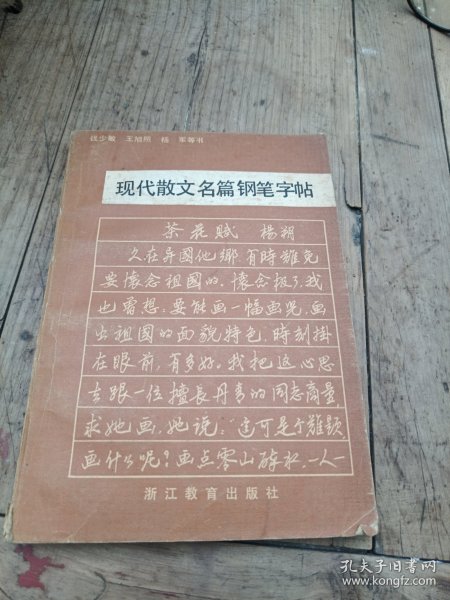 钱少敏 王旭照 杨 军等书
现代散文名篇钢笔字帖
茶花赋 楊朔
久在异國他鄉,有時難免
要懷念祖國的。懷念极了,我
也曾想:要能画一幅画兒,画
出祖國的面貌特色,時刻掛
在眼前,有多好。我把这心思
去跟一位擅長丹青的同志商量,
求她画。她说:“这可是个難題,
画什么呢?画点零山碎水,一人一
浙江教育出版社
孔夫子旧书网
www.kongfz.com